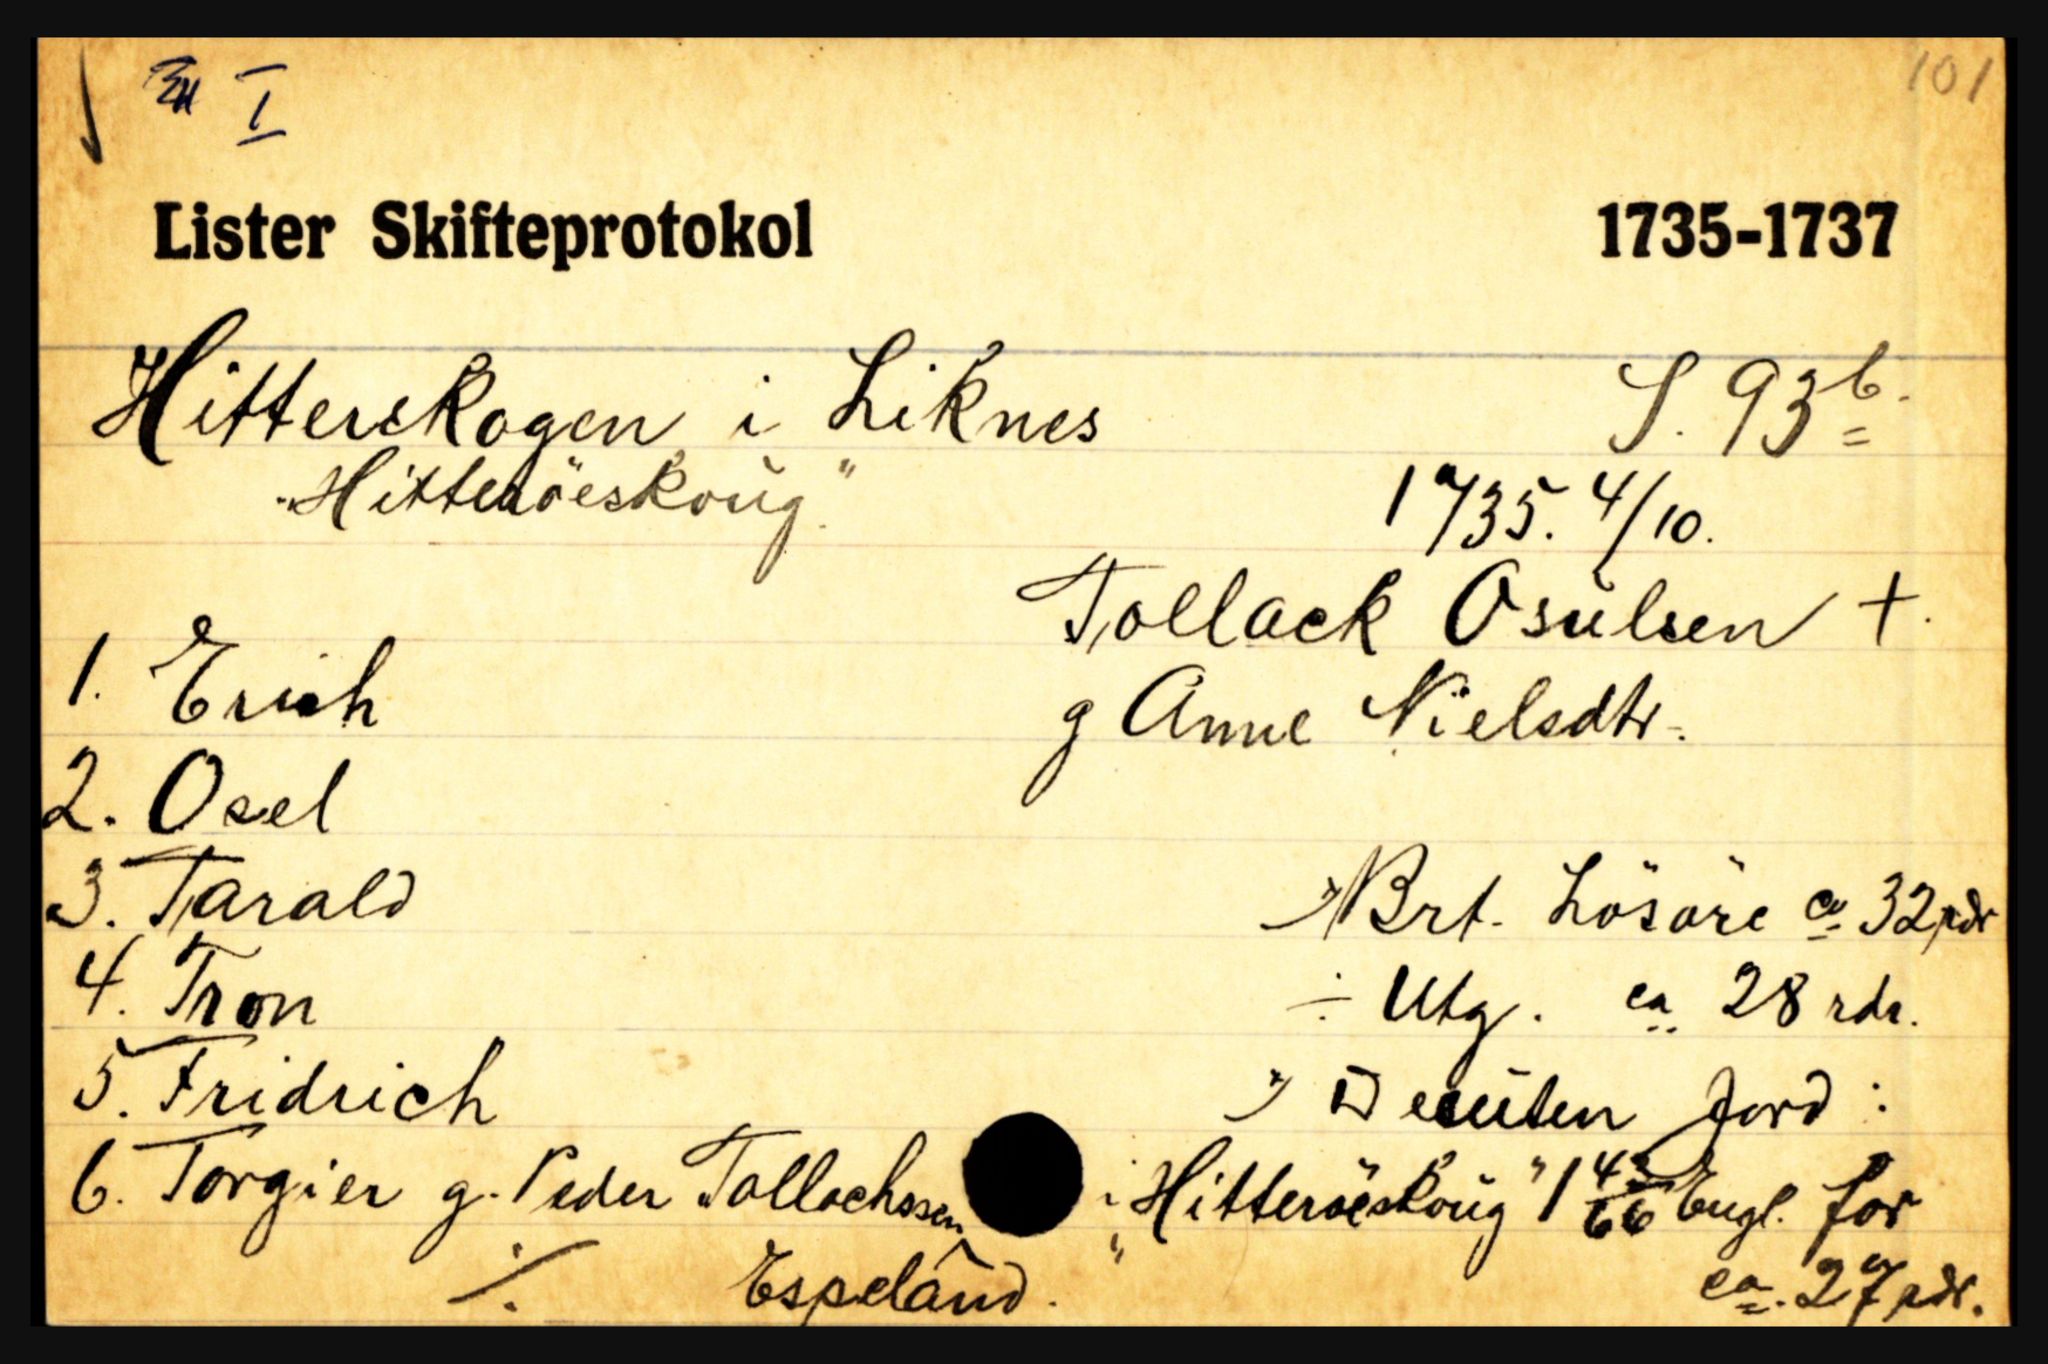 I
101
Lister Skifteprotokol 1735-1737
Hitterskogen i Liknes S. 93b.
"Hitteröeskoug"
1735. 4/10.
Tollack Osulsen +.
g Anne Nielsdtr.
1. Erich
2. Osel
3. Tarald
4. Tron
5. Fridrich
6. Torgier g. Peder Tollachssen
Espeland.
Brt. Lösöre ca 32 rdr
÷ Utg. ca 28 rdr.
Jord:
i "Hitteröeskoug" 1 Engl. for
ca. 27 rdr.